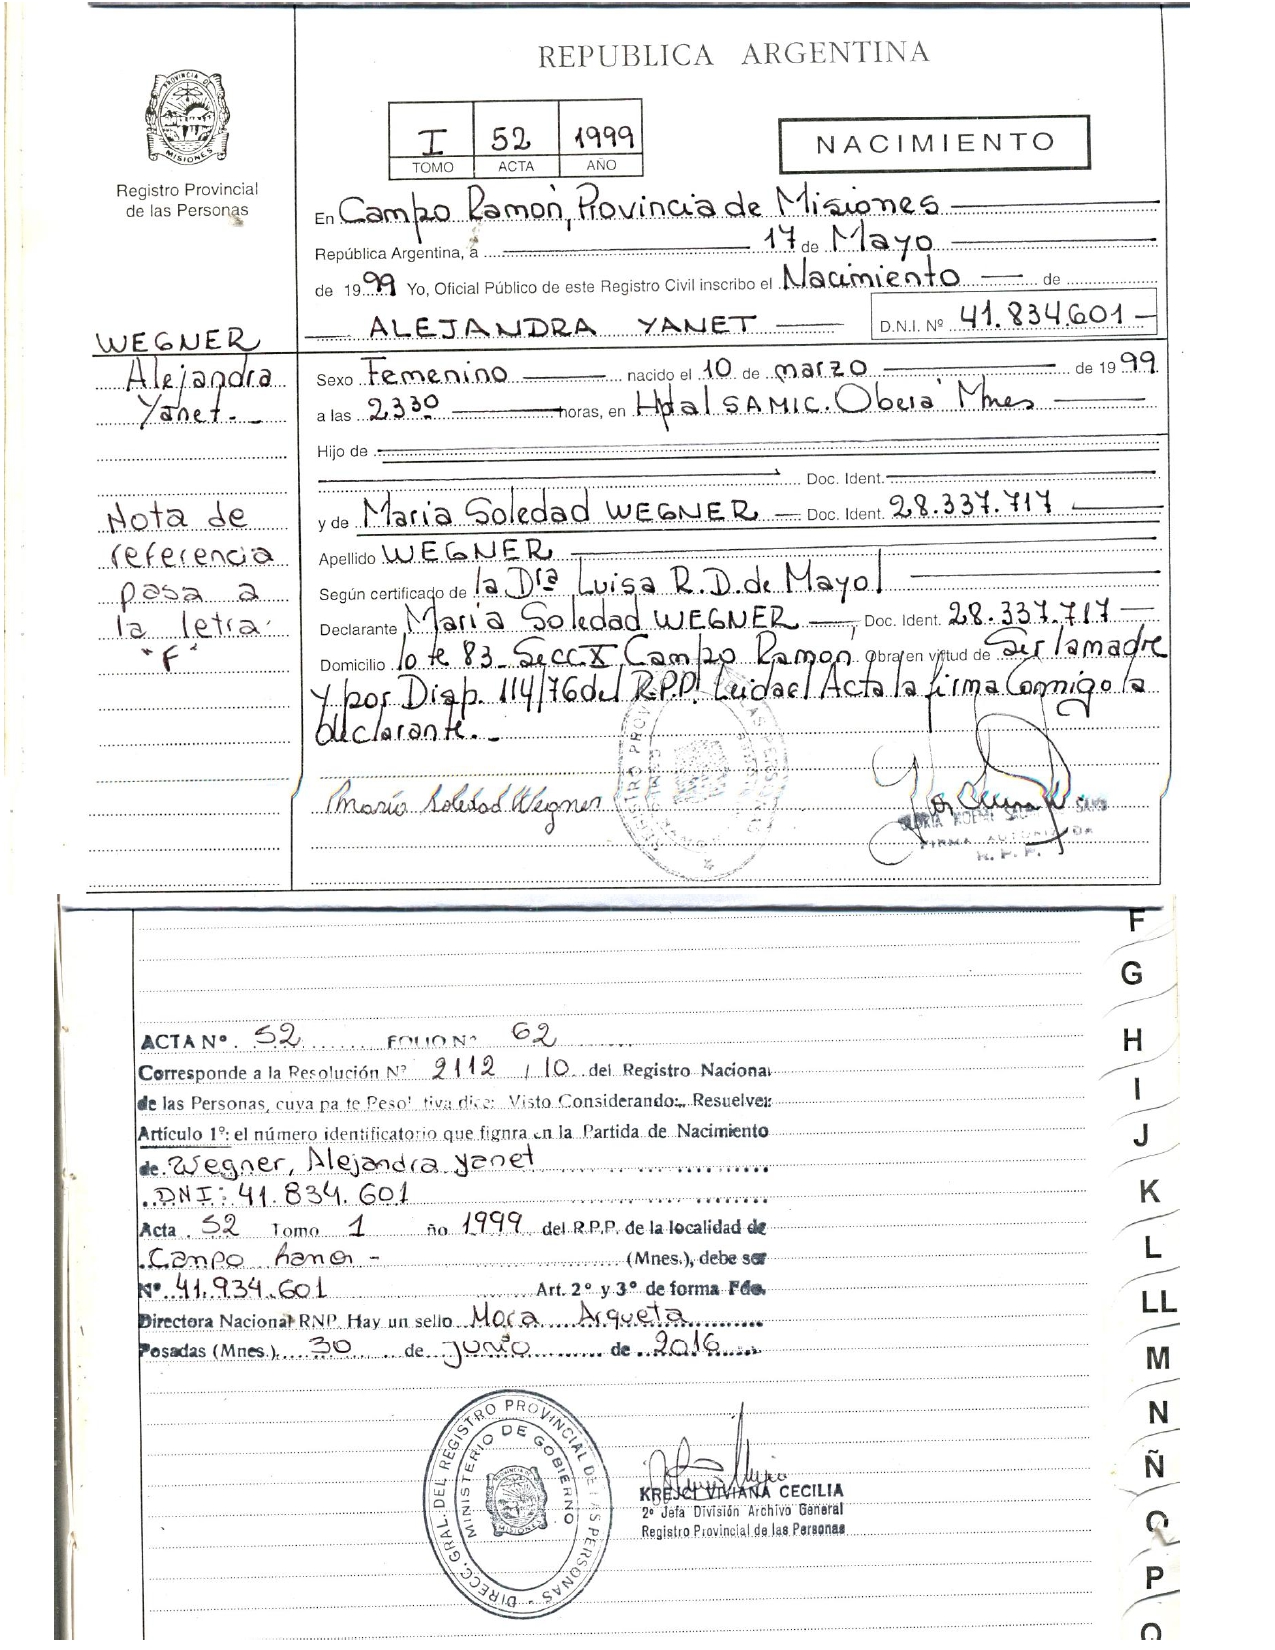 REPUBLICA ARGENTINA
PROVINCIA DE MISIONES
I 52 1999
TOMO ACTA AÑO
NACIMIENTO
Registro Provincial
de las Personas
En Campo Ramón, Provincia de Misiones
República Argentina, a 17 de Mayo
de 1999 Yo, Oficial Público de este Registro Civil inscribo el Nacimiento de
ALEJANDRA YANET D.N.I. Nº 41.834.601
WEGNER
Alejandra
Yanet.
Sexo Femenino nacido el 10 de marzo de 1999
a las 2330 horas, en Hptal SAMIC. Oberá Mnes
Hijo de
Doc. Ident.
y de Maria Soledad WEGNER Doc. Ident. 28.337.717
Nota de
referencia
pasa a
la letra
"F"
Apellido WEGNER
Según certificado de la Dra Luisa R.D. de Mayol
Declarante Maria Soledad WEGNER Doc. Ident. 28.337.717
Domicilio lote 83 Secc X, Campo Ramón Obra en virtud de Ser la madre
y por Disp. 114/76 del R.P.P. Leida el Acta la firma Conmigo la
declarante.
Maria Soledad Wegner
FIRMA AUTORIZADA
R. P. P.
ACTA Nº 52 FOLIO Nº 62
Corresponde a la Resolución Nº 2112 / 10 del Registro Nacional
de las Personas, cuya pa te Resol tiva dice: Visto Considerando: Resuelve:
Artículo 1º: el número identificatorio que fignra en la Partida de Nacimiento
de Wegner, Alejandra Yanet
DNI: 41.834.601
Acta 52 Tomo 1 ño 1999 del R.P.P. de la localidad de
Campo Ramon - (Mnes.), debe ser
Nº 41.934.601 Art. 2º y 3º de forma Fdo.
Directora Nacional RNP. Hay un sello Mora Arqueta
Posadas (Mnes.) 30 de junio de 2016
DIRECC. GRAL. DEL REGISTRO PROVINCIAL DE LAS PERSONAS
MINISTERIO DE GOBIERNO
MISIONES
KREJCI VIVIANA CECILIA
2º Jefa División Archivo General
Registro Provincial de las Personas
F
G
H
I
J
K
L
LL
M
N
Ñ
O
P
Q